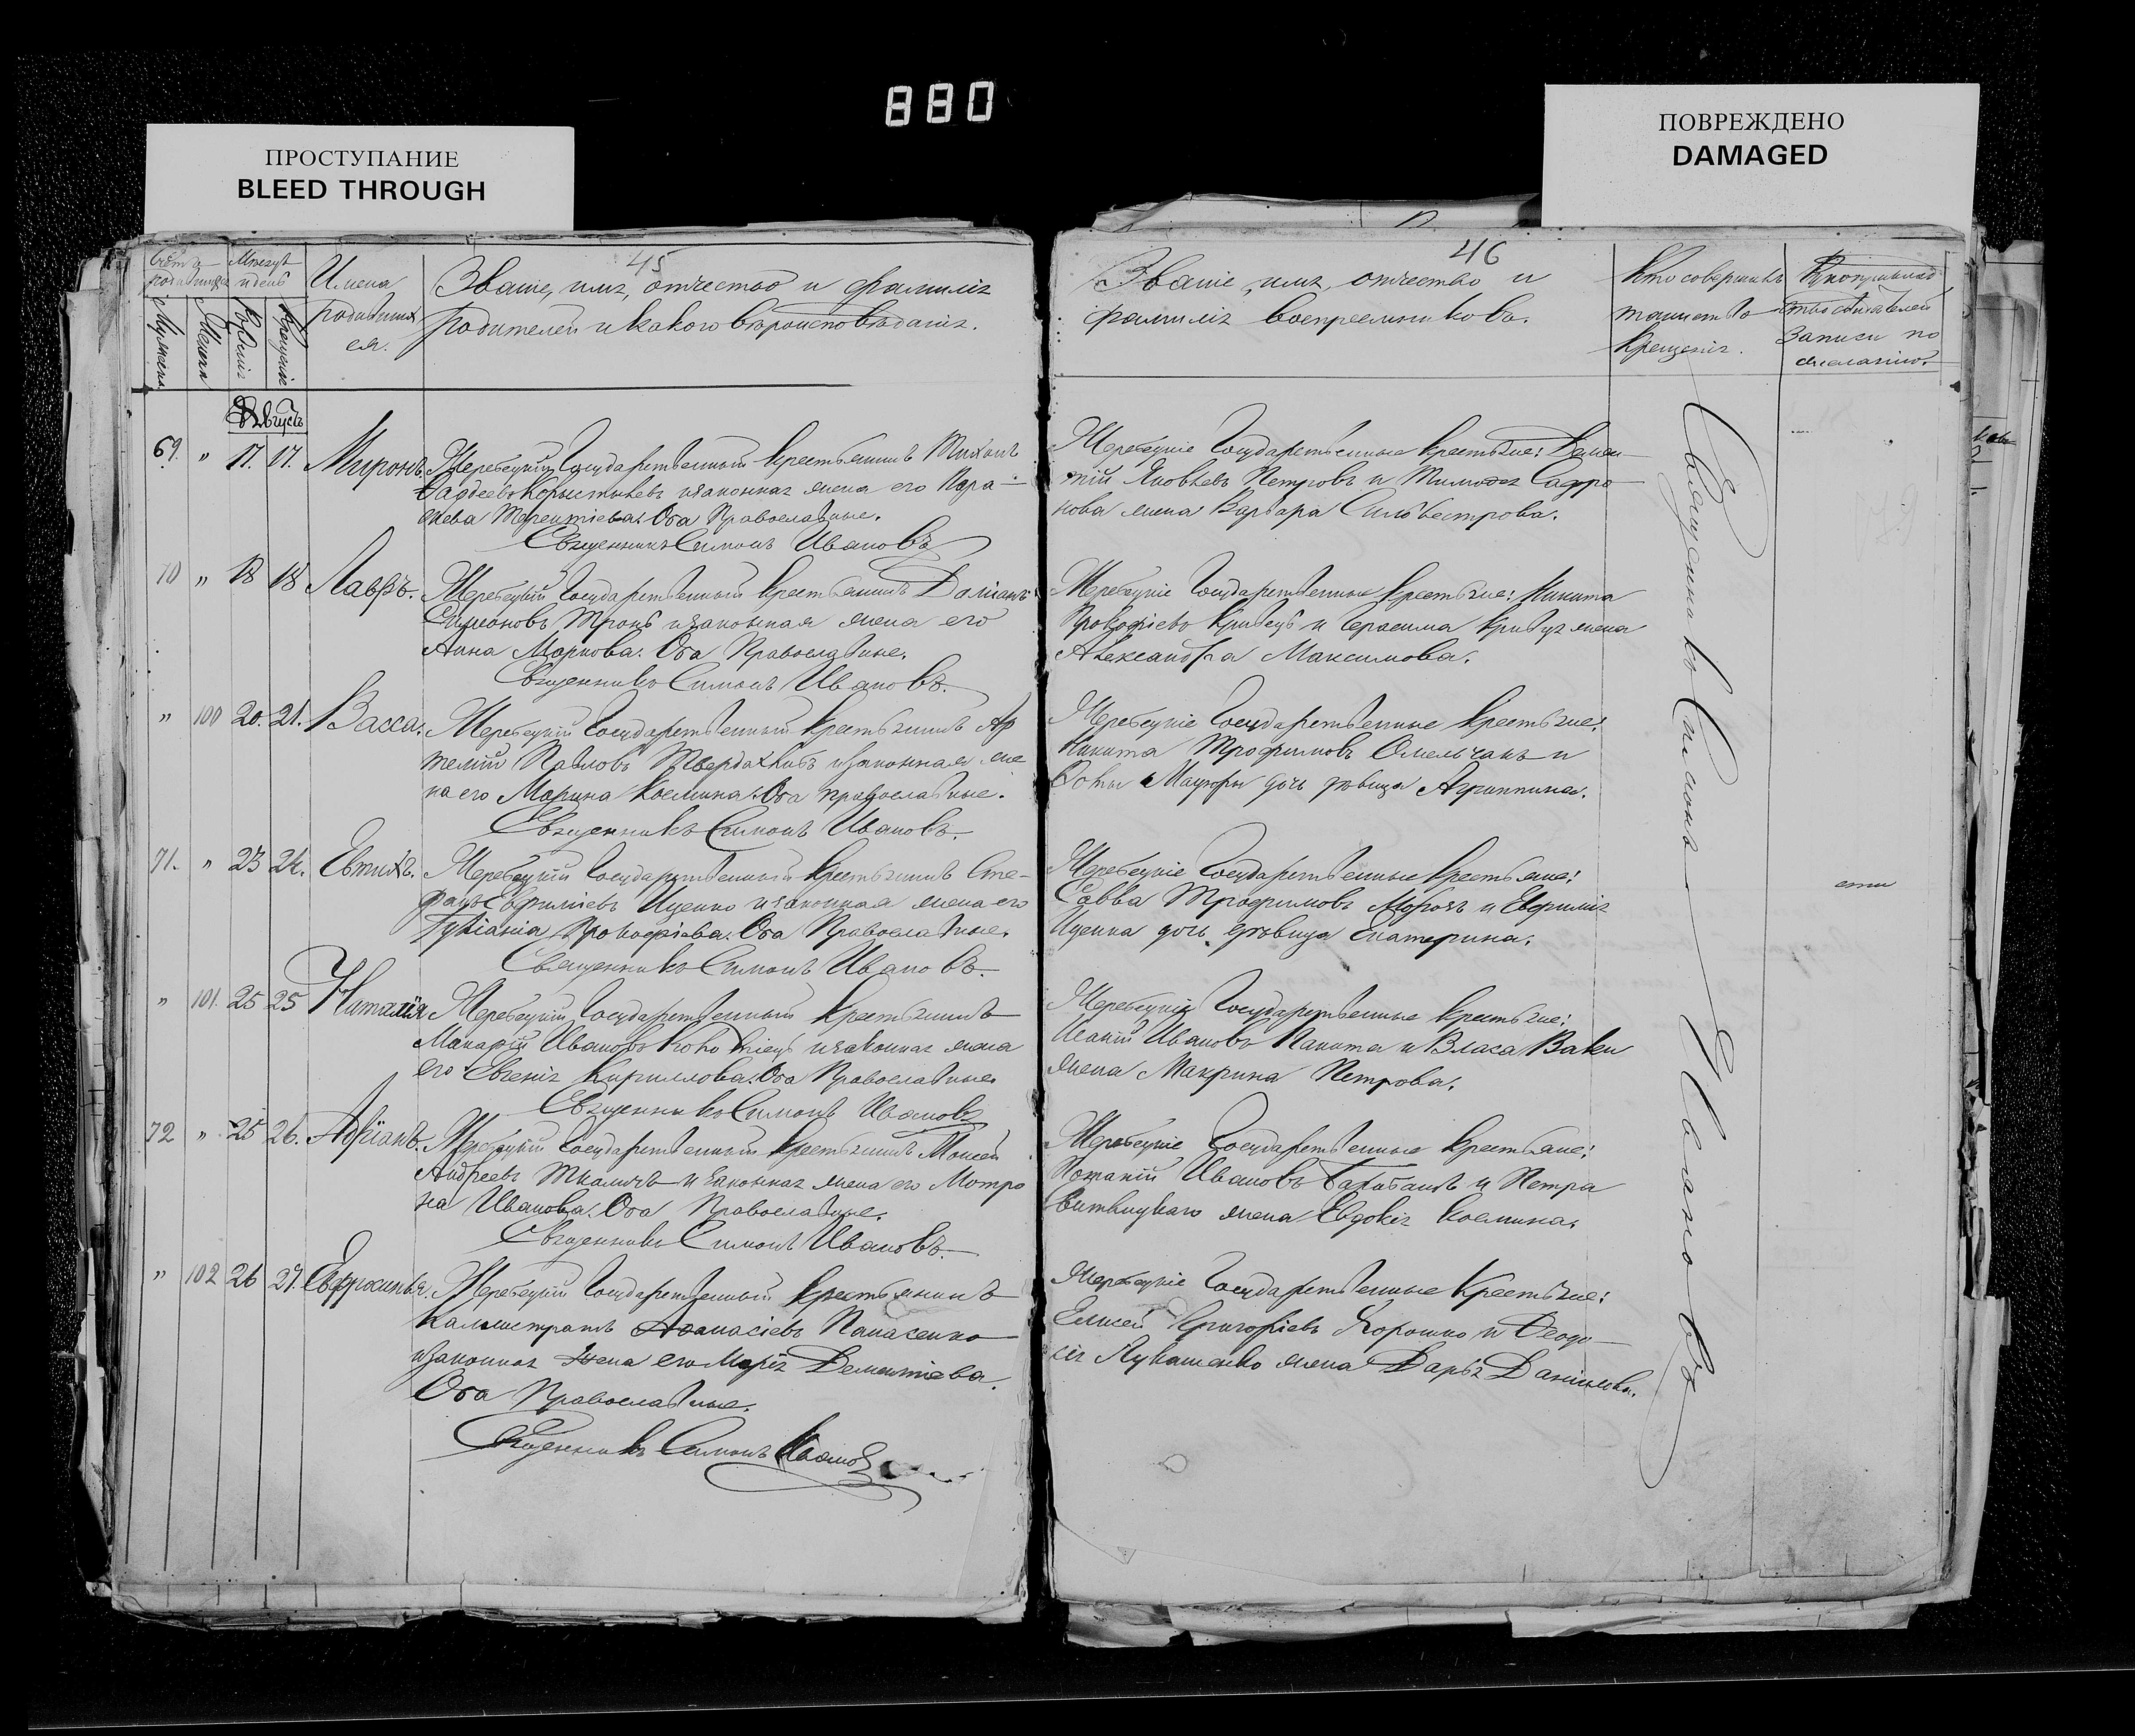 880
ПРОСТУПАНИЕ
BLEED THROUGH
ПОВРЕЖДЕНО
DAMAGED
45
Имена родившихся.
Званіе, имя, отчество и фамилія
родителей и какого вѣроисповѣданія.
Мужеска
Женска
Рожденія
Крещенія
Августъ
69. " 17. 17. Миронъ. Жеребецкій Государственный крестьянинъ Тихонъ
законная жена его Пара-
скева Терентіева. Оба Православные.
Священникъ Симонъ Ивановъ
70 " 18 18 Лавръ. Жеребецкій Государственный крестьянинъ Даміанъ
Симоновъ Тронь и законная жена его
Анна Маркова. Оба Православные.
Священникъ Симонъ Ивановъ.
" 100 20. 21. Васса. Жеребецкій Государственный крестьянинъ Ар
темій Павловъ и законная же
на его Марина Космина. Оба православные.
Священникъ Симонъ Ивановъ.
71. " 23 24. Евтихъ. Жеребецкій Государственный крестьянинъ Сте-
фанъ Евфиміевъ Ищенко и законная жена его
Гукіанія Прокофіева. Оба Православные.
Священникъ Симонъ Ивановъ.
" 101. 25 25 Наталія Жеребецкій Государственный крестьянинъ
Макарій Ивановъ и законная жена
его Евгенія Кириллова. Оба Православные.
Священникъ Симонъ Ивановъ
72 " 25 26. Адріанъ. Жеребецкій Государственный крестьянинъ Моисей
Андреевъ Ткаличъ и законная жена его Матро
на Иванова. Оба Православные.
Священникъ Симонъ Ивановъ.
" 102 26 27. Евфросинья. Жеребецкій Государственный крестьянинъ
Каллистратъ Афанасіевъ Панасенко
и законная жена его Марія Дементіева.
Оба Православные.
Священникъ Симонъ Ивановъ
46
Званіе, имя, отчество и
фамилія воспреемниковъ.
Кто совершилъ
таинство
крещенія.
Записи по
желанію.
Жеребецкіе Государственные крестьяне: Демен-
тій Яковлевъ Петровъ и Тимофея Сафро-
нова жена Варвара Сильвестрова.
Жеребецкіе Государственные крестьяне: Никита
Прокофіевъ Кривецъ и Герасима жена
Александра Максимова.
Жеребецкіе Государственные крестьяне:
Никита Трофимовъ Омельчакъ и
дочь дѣвица Агриппина.
Жеребецкіе Государственные крестьяне:
Савва Трофимовъ Морозъ и Евфимія
Ищенка дочь дѣвица Екатерина.
Жеребецкіе Государственные крестьяне:
Ивановъ и Власа
жена Макрина Петрова.
Жеребецкіе Государственные крестьяне:
Ивановъ и Петра
жена Евдокія Космина.
Жеребецкіе Государственные Крестьяне:
Елисей Григоріевъ Дорошко и Феодо-
сія Лукашенко жена Дарья Данилова.
Священникъ Симонъ Ивановъ